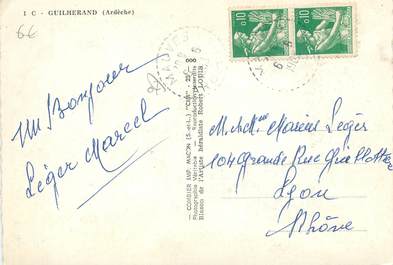 1 C - GUILHERAND (Ardèche)
66
0,10
0,10
Un Bonjour
Léger Marcel
COMBIER IMP. MACON (S.-et-L.) "CIM"
Photographie Véritable - Reproduction interdite
Blason de l'Artiste héraldiste Robert LOUIS
M. et Mme Marius Léger
104 Grande Rue Guillotière
Lyon
Rhône